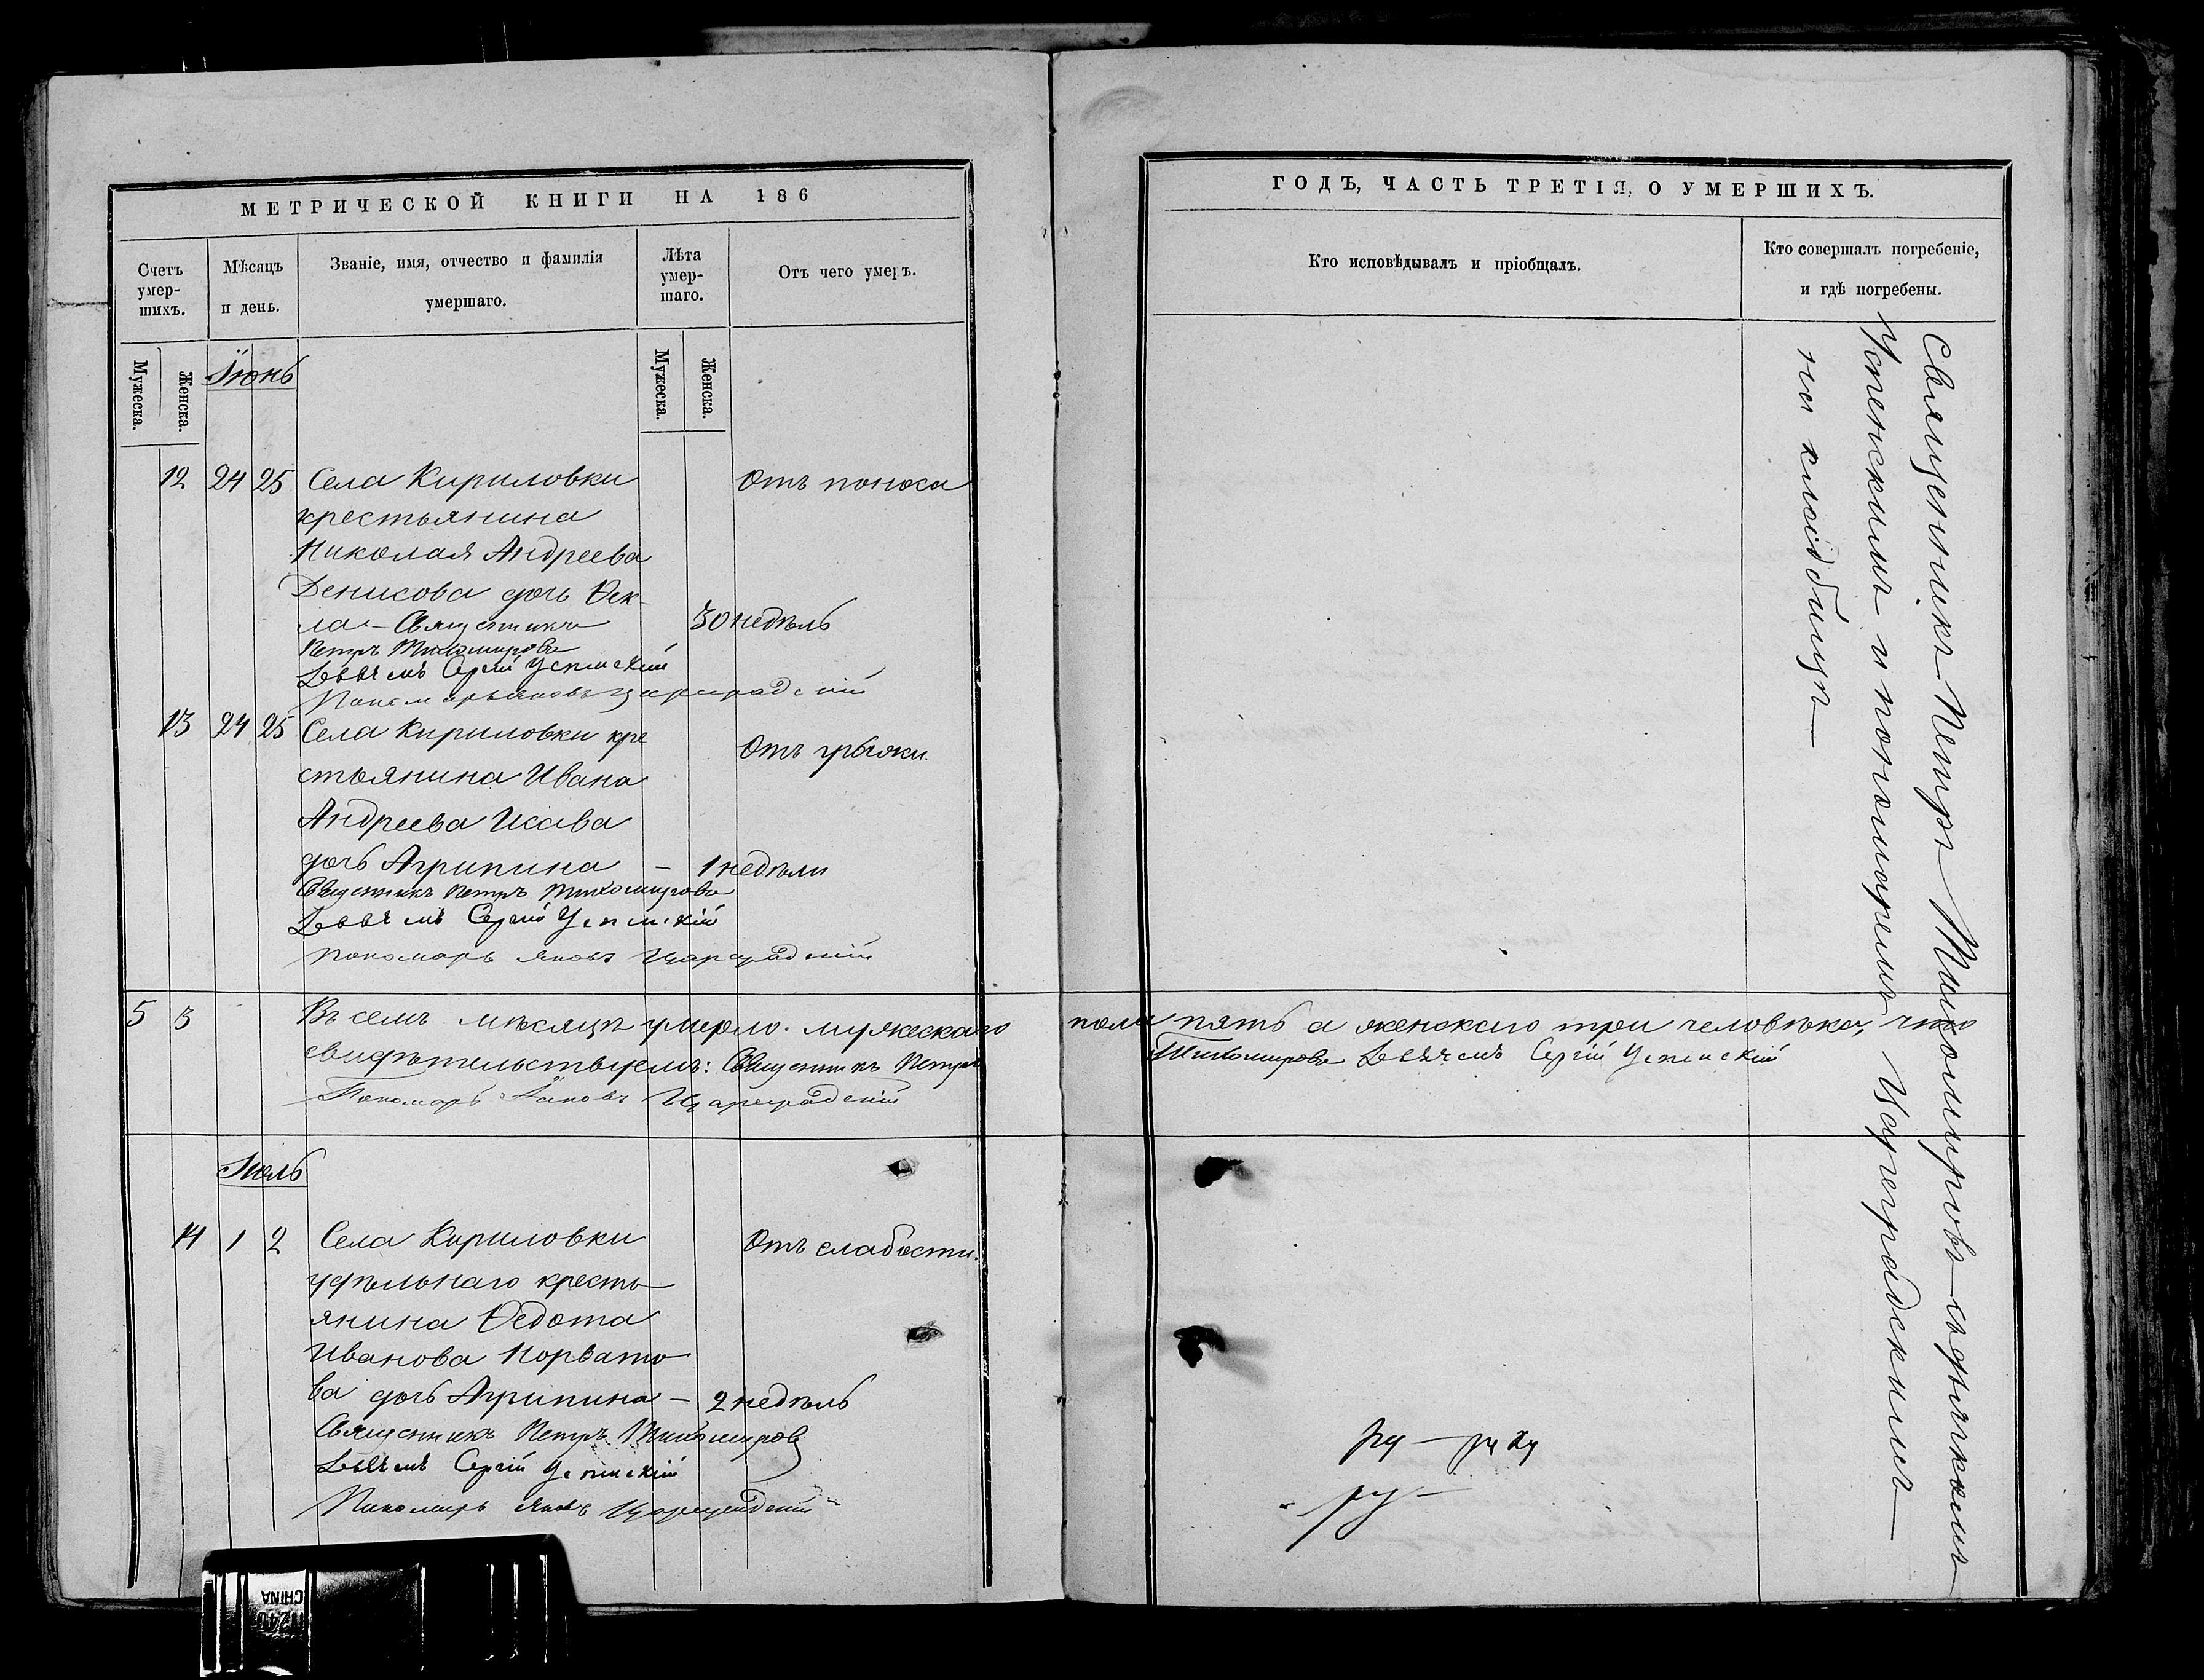 МЕТРИЧЕСКОЙ КНИГИ НА 186
Счетъ умер-шихъ.
Мѣсяцъ и день.
Званіе, имя, отчество и фамилія умершаго.
Лѣта умер-шаго.
Отъ чего умеръ.
Мужеска.
Женска.
Мужеска.
Женска.
Іюнь
12 24 25 Села Кириловки Отъ поноса
крестьянина
Николая Андреева
Денисова дочь Ѳек-
ла – Священникъ 30 недѣль
Петръ Тихомировъ
Дьячекъ Сергій Успенскій
Пономарь Яковъ Цареградскій
13 24 25 Села Кириловки кре Отъ грыжи.
стьянина Ивана
Андреева Исава
дочь Агрипина – 1 недѣли
Священникъ Петръ Тихомировъ
Дьячекъ Сергій Успенскій
Пономарь Яковъ Цареградскій
5 3 Въ семъ мѣсяцѣ умерло мужескаго
свидѣтельствуемъ: Священникъ Петръ
Пономарь Яковъ Цареградскій
Іюль
14 1 2 Села Кириловки Отъ слабости.
удѣльнаго кресть
янина Ѳедота
Иванова Норвато
ва дочь Агрипина – 2 недѣль
Священникъ Петръ Тихомировъ
Дьячекъ Сергій Успенскій
Пономарь Яковъ Цареградскій
ГОДЪ, ЧАСТЬ ТРЕТІЯ, О УМЕРШИХЪ.
Кто исповѣдывалъ и пріобщалъ.
Кто совершалъ погребеніе,
и гдѣ погребены.
Священникъ Петръ Тихомировъ съ дьячкомъ
Успенскимъ и пономаремъ Цареградскимъ
на кладбищѣ
пола пять а женскаго три человѣка, что
Тихомировъ Дьячекъ Сергій Успенскій
CHINA